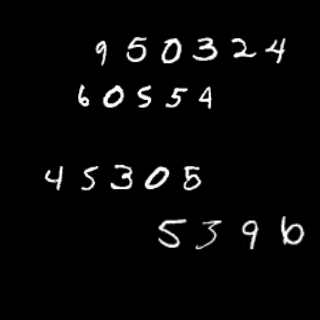 950324
60554
45305
5396